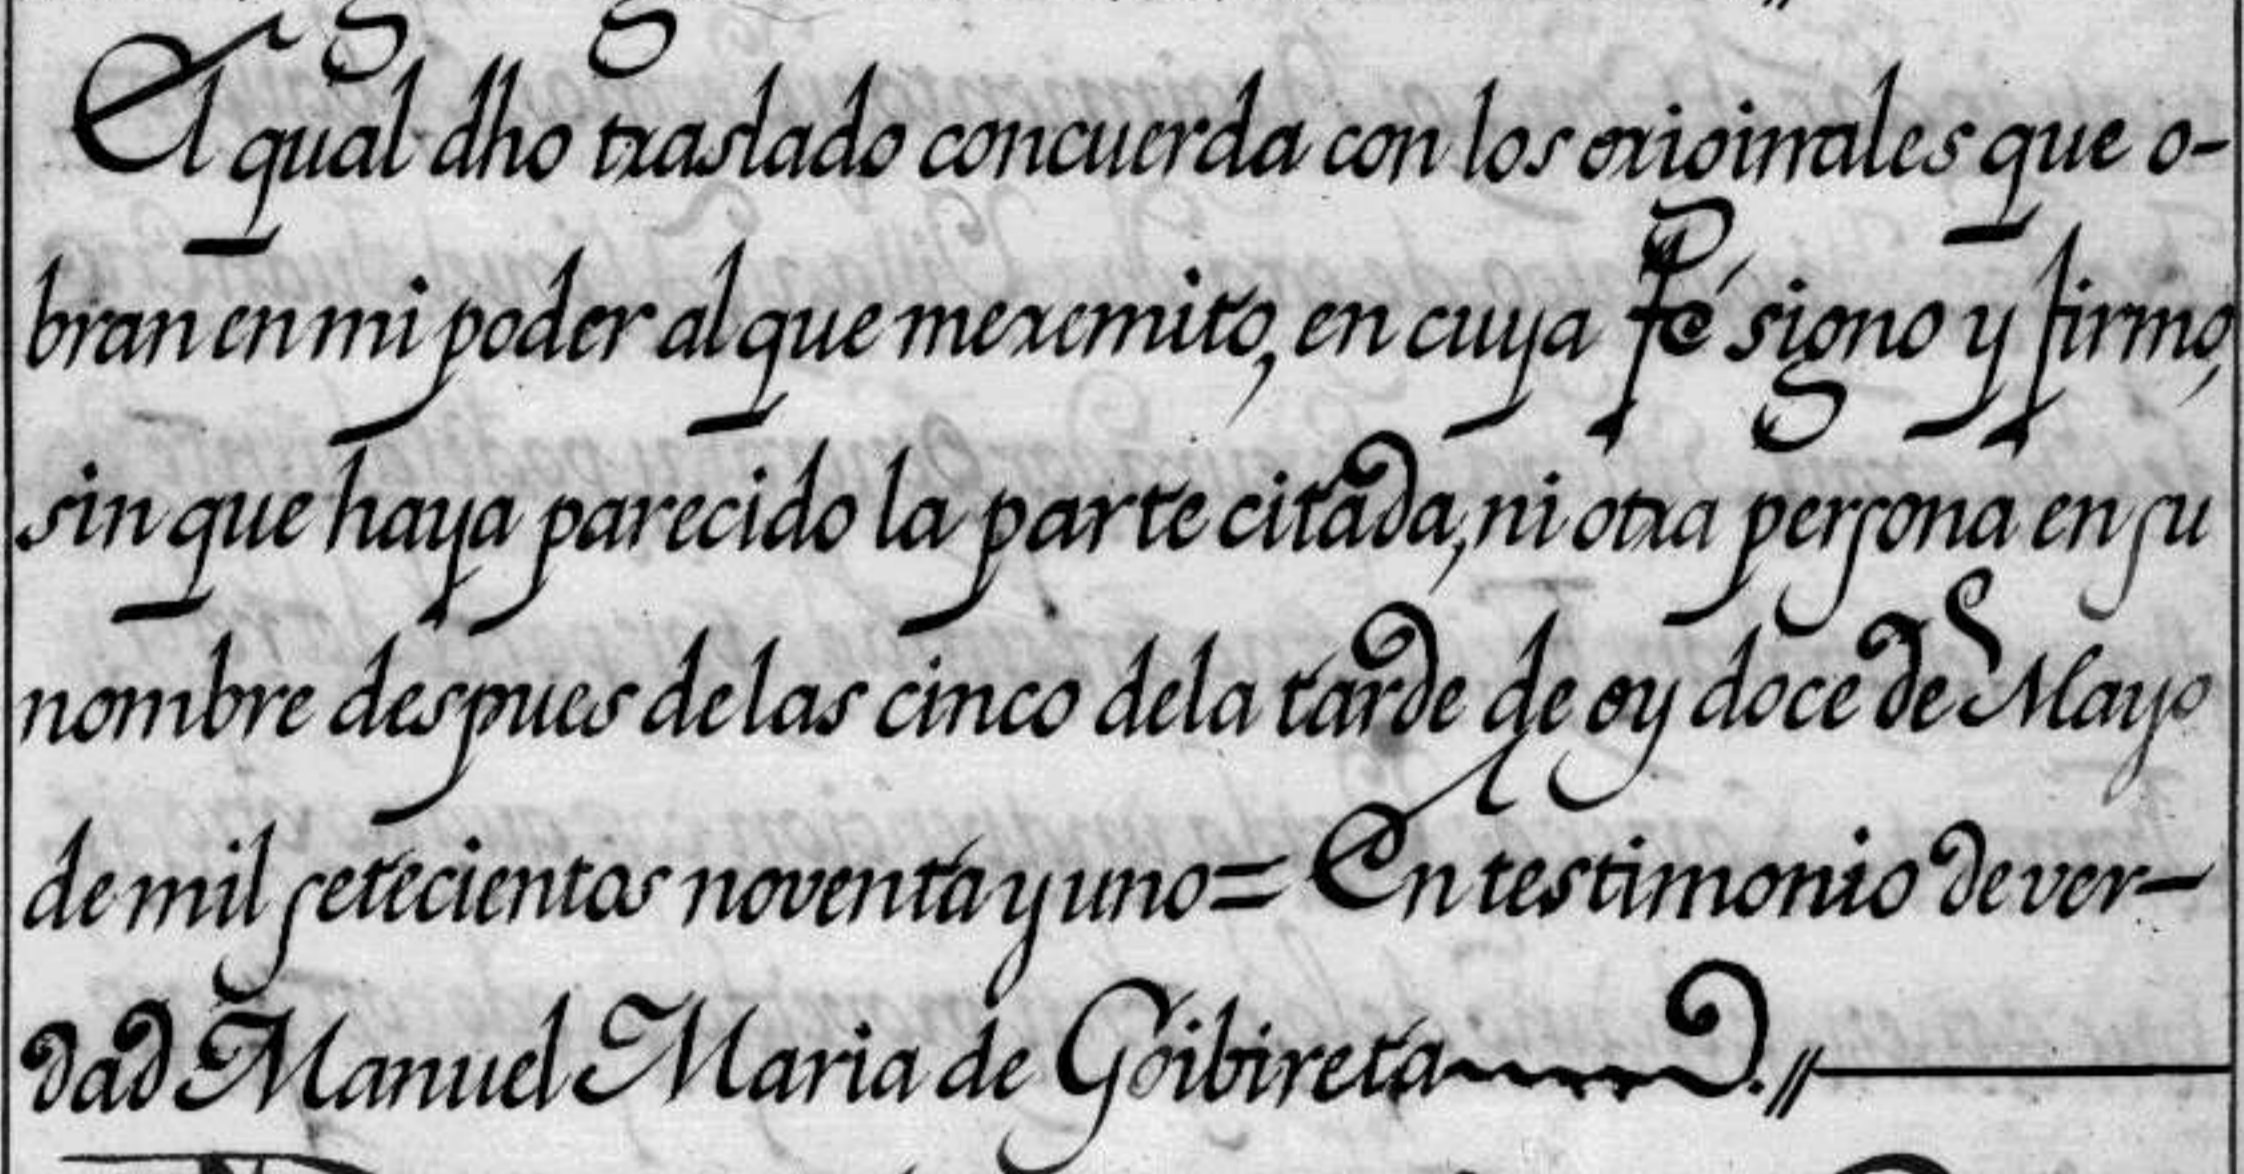 El qual dho traslado concuerda con los originales que o-
bran en mi poder al que me remito, en cuya fé signo y firmo,
sin que haya parecido la parte citada, ni otra persona en su
nombre despues de las cinco dela tarde de oy doce de Mayo
de mil setecientos noventa y uno = En testimonio de ver-
dad Manuel Maria de Goibireta //